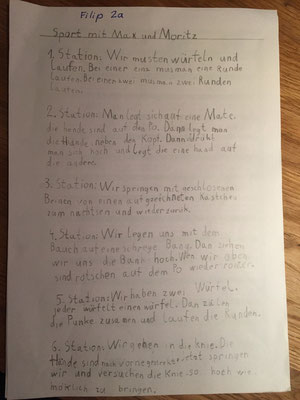 Filip 2a
Sport mit Max und Moritz
1. Station: Wir musten würfeln und
Laufen. Bei einer eins musman eine Runde
Laufen. Bei einer zwei musman zwei Runden
Laufen.
2. Station: Man legt sich auf eine Mate.
die hände sind auf den Po. Dann legt man
die Hände neben den Kopf. Dann drükt
man sich hoch und legt die eine hand auf
die andere.
3. Station: Wir springen mit geschlosenen
Beinen von einen aufgerichteten Kästchen
zum nächtsen und wieder zurük.
4. Station: Wir legen uns mit dem
Bauch auf eine schrege Bang. Dan ziehen
wir uns die Bank hoch. Wen wir oben
sind rotschen auf dem Po wieder runter.
5. Station: Wir haben zwei Würfel.
jeder würfelt einen würfel. Dan zälen
die Punke zusamen und laufen die Runden.
6. Station: Wir gehen in die knie. Die
Hände sind nach vorne Jetzt springen
wir und versuchen die Knie so hoch wie
möklich zu bringen.